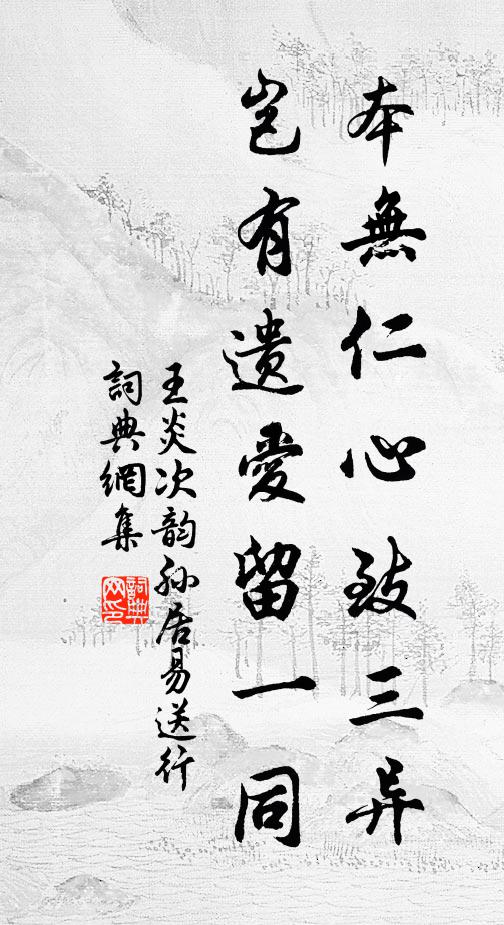 本無仁心致三异
豈有遺愛留一同
王炎次韵孙居易送行
詞典網集